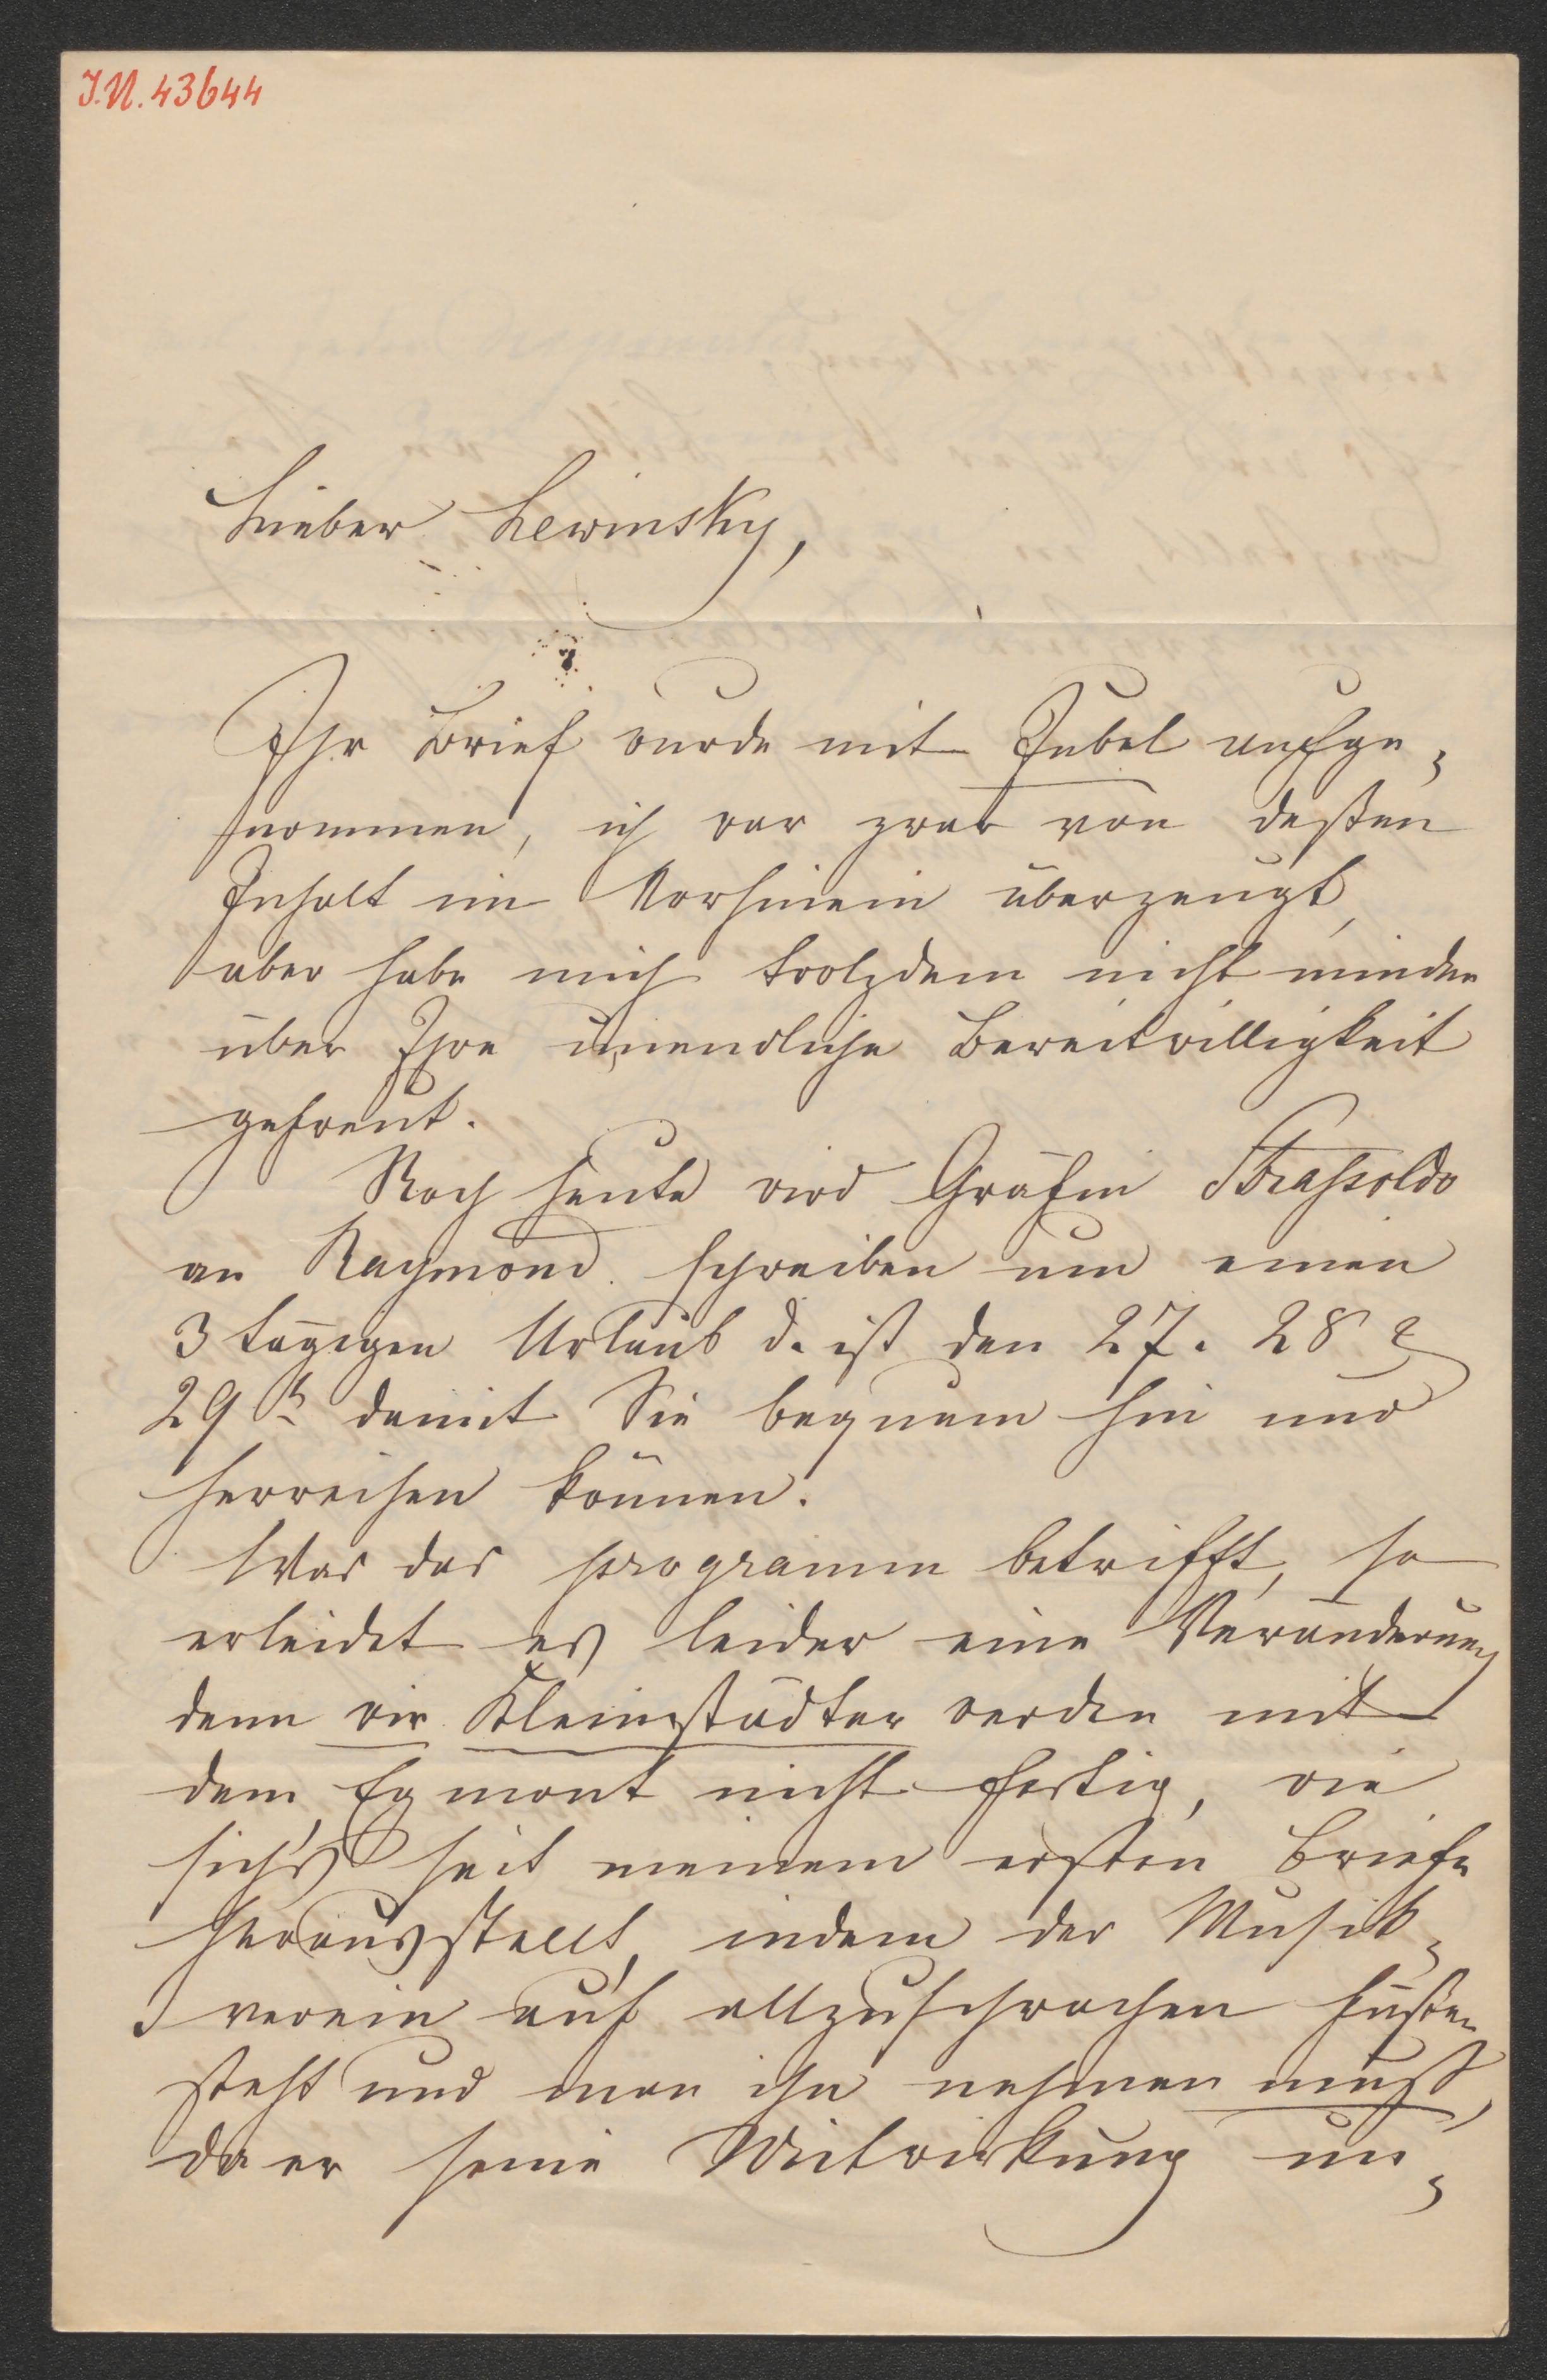 I.N. 43644
Lieber Lewinsky,
Ihr Brief wurde mit Jubel aufge-
nommen, ich war zwar von deßen
Inhalt im Vorhinein überzeugt,
aber habe mich trotzdem nicht minder
über Ihre unendliche Bereitwilligkeit
gefreut.
Noch heute wird Gräfin Straßoldo
an Raymond schreiben um einen
3 tägigen Urlaub d. ist den 27. 28 &
29t damit Sie bequem hin und
herreisen können.
Was das Programm betrifft, so
erleidet es leider eine Veränderung
denn wir Kleinstädter werden mit
dem Egmont nicht fertig, wie
sich's seit meinem ersten Briefe
herausstellt, indem der Musik-
verein auf allzuschwachen Füßen
steht und man ihn nehmen muß,
da er seine Mitwirkung un-